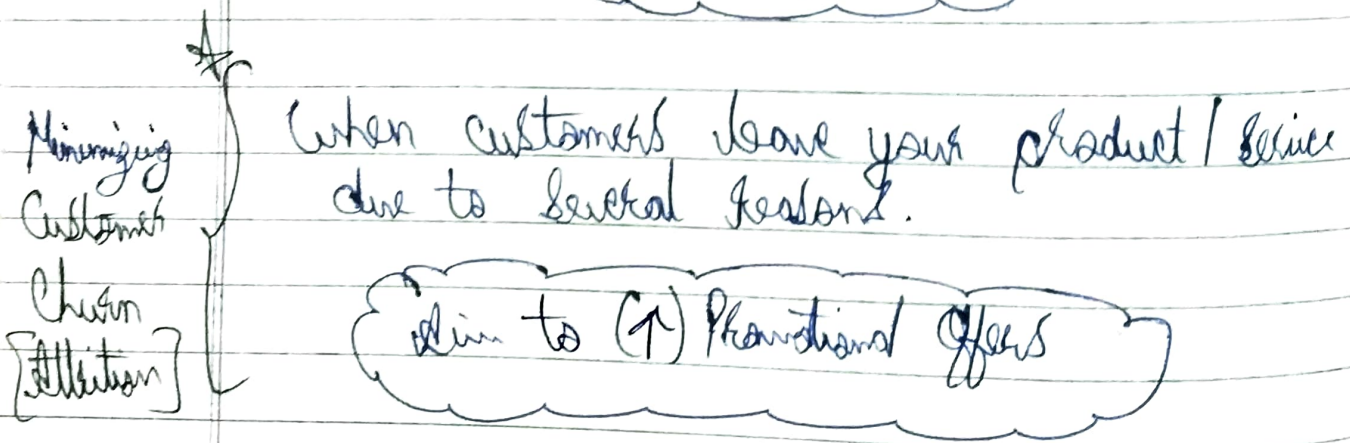 Minimizing
Customer
Churn
[Attrition]
When customers leave your product / service
due to several reasons.
Aim to (↑) Promotional Offers